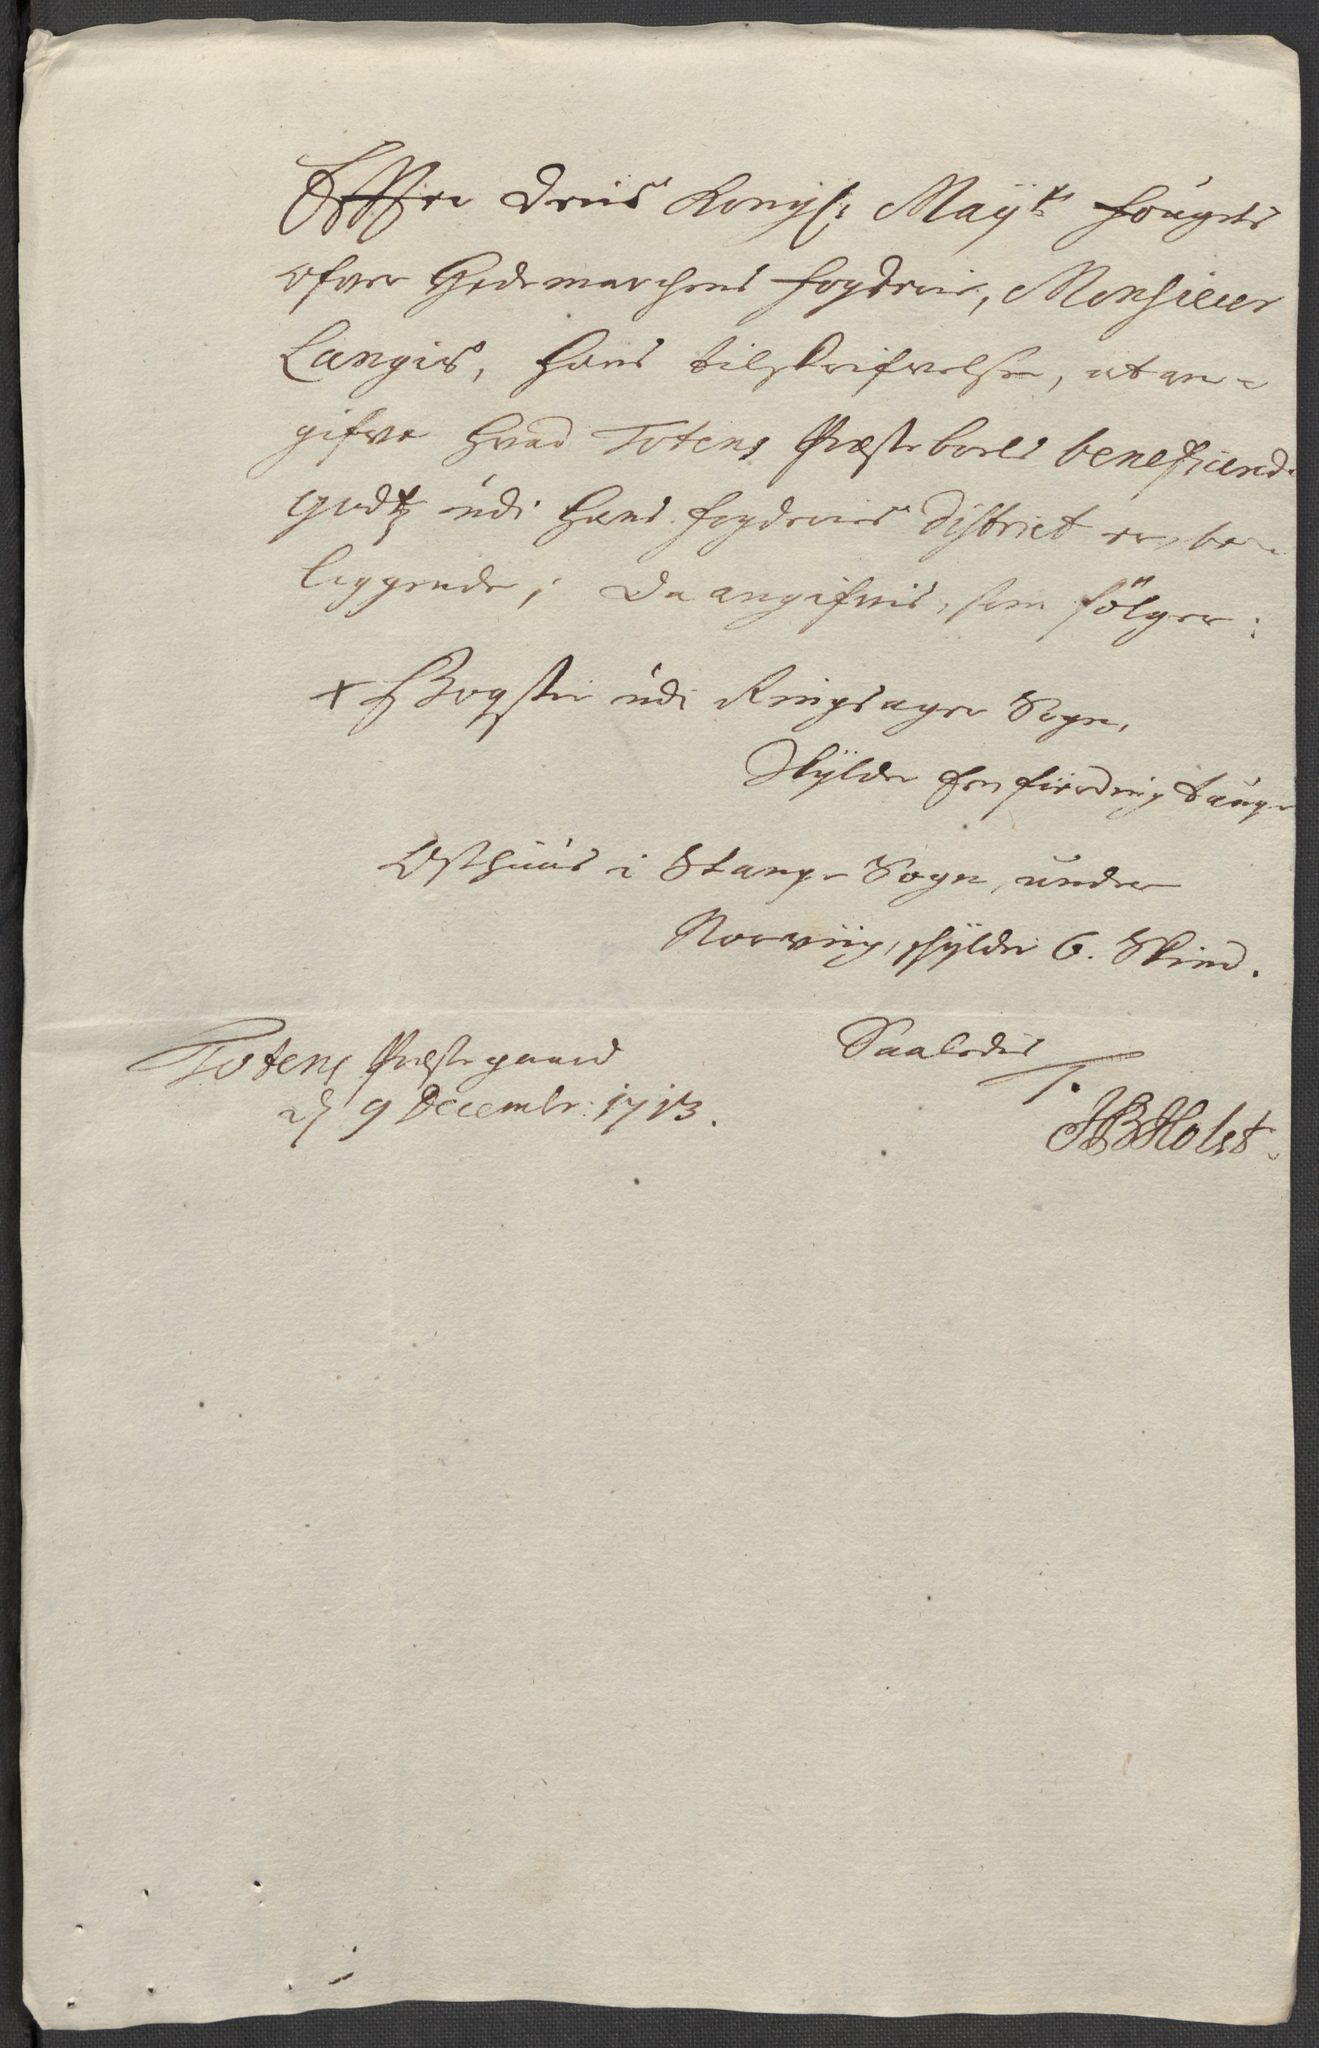 Effter Deris Kongl: Mayts fougets
ofver Hedemarchens fogderie, Monsieur
Langis, hans tilskrifvelse, at an-
gifve hvad Totens Præstebols beneficered
godtz udi hans fogderies District er be-
liggende; Da angifves, som fölger:
+ Bogstie udi Ringsager Sogn,
Skylder En fierding tunge
Østhuus i Stange Sogn, under
Norviig, skylder 6. Skind.
Totens Præstegaard
d 9 Decembr: 1713.
Saaledis
T.
HBHolst.